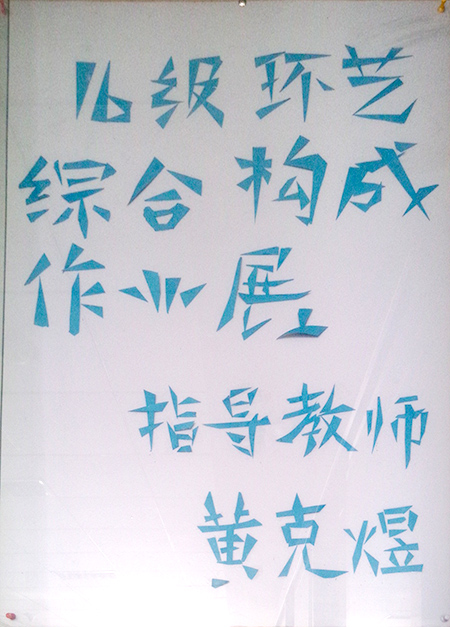 16级环艺
综合构成
作业展
指导教师
黄克煜